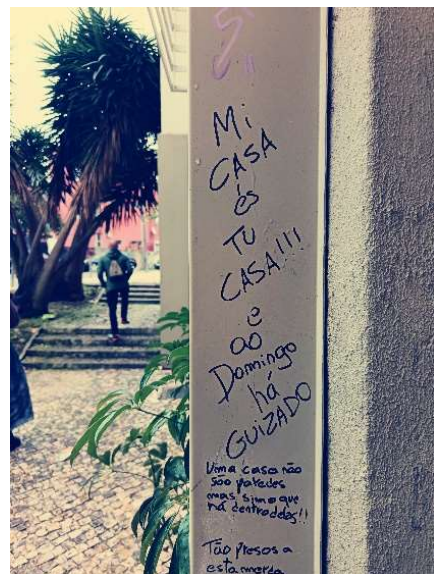 Mi
CASA
és
TU
CASA!!!
e
ao
Domingo
há
GUIZADO
Uma casa não
são paredes
mas sim o que
há dentro delas!!
Tão presos a
esta merda